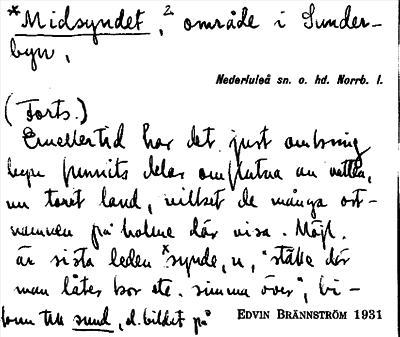 *Midsyndet,² område i Sunder-
byn,
Nederluleå sn. o. hd. Norrb. l.
(Forts.)
Emellertid har det just omkring
byn funnits delar omflutna av vatten,
nu torrt land, vilket de många ort-
namnen på holme där visa. Möjl.
är sista leden *synde, n, "ställe där
man låter bor etc. simma över", bi-
form till sund, el. bildet på
EDVIN BRÄNNSTRÖM 1931